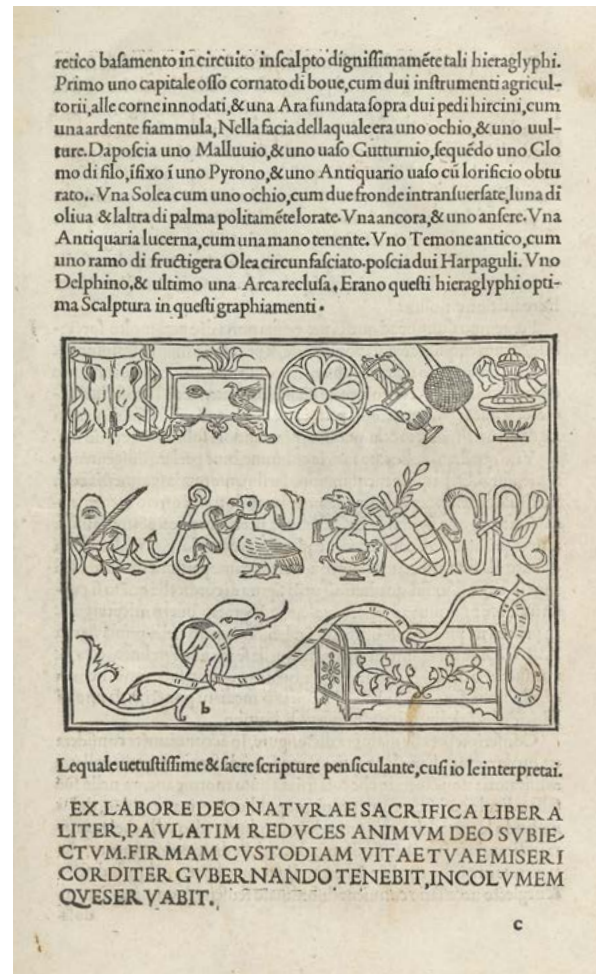 retico basamento in circuito inscalpto dignissimamēte tali hieraglyphi.
Primo uno capitale osso cornato di boue, cum dui instrumenti agricul-
torii, alle corne innodati, & una Ara fundata sopra dui pedi hircini, cum
una ardente fiammula, Nella facia dellaquale era uno ochio, & uno uul-
ture. Daposcia uno Malluuio, & uno uaso Gutturnio, sequēdo uno Glo
mo di filo, īfixo ī uno Pyrono, & uno Antiquario uaso cū lorificio obtu
rato.. Vna Solea cum uno ochio, cum due fronde intransuersate, luna di
oliua & laltra di palma politamēte lorate. Vna ancora, & uno ansere. Vna
Antiquaria lucerna, cum una mano tenente. Vno Temone antico, cum
uno ramo di fructigera Olea circunfasciato. poscia dui Harpaguli. Vno
Delphino, & ultimo una Arca reclusa. Erano questi hieraglyphi opti-
ma Scalptura in questi graphiamenti.
b
Lequale uetustissime & sacre scripture pensiculante, cusi io le interpretai.
EX LABORE DEO NATVRAE SACRIFICA LIBERA
LITER, PAVLATIM REDVCES ANIMVM DEO SVBIE-
CTVM. FIRMAM CVSTODIAM VITAE TVAE MISERI
CORDITER GVBERNANDO TENEBIT, INCOLVMEM
QVESERVABIT.
c